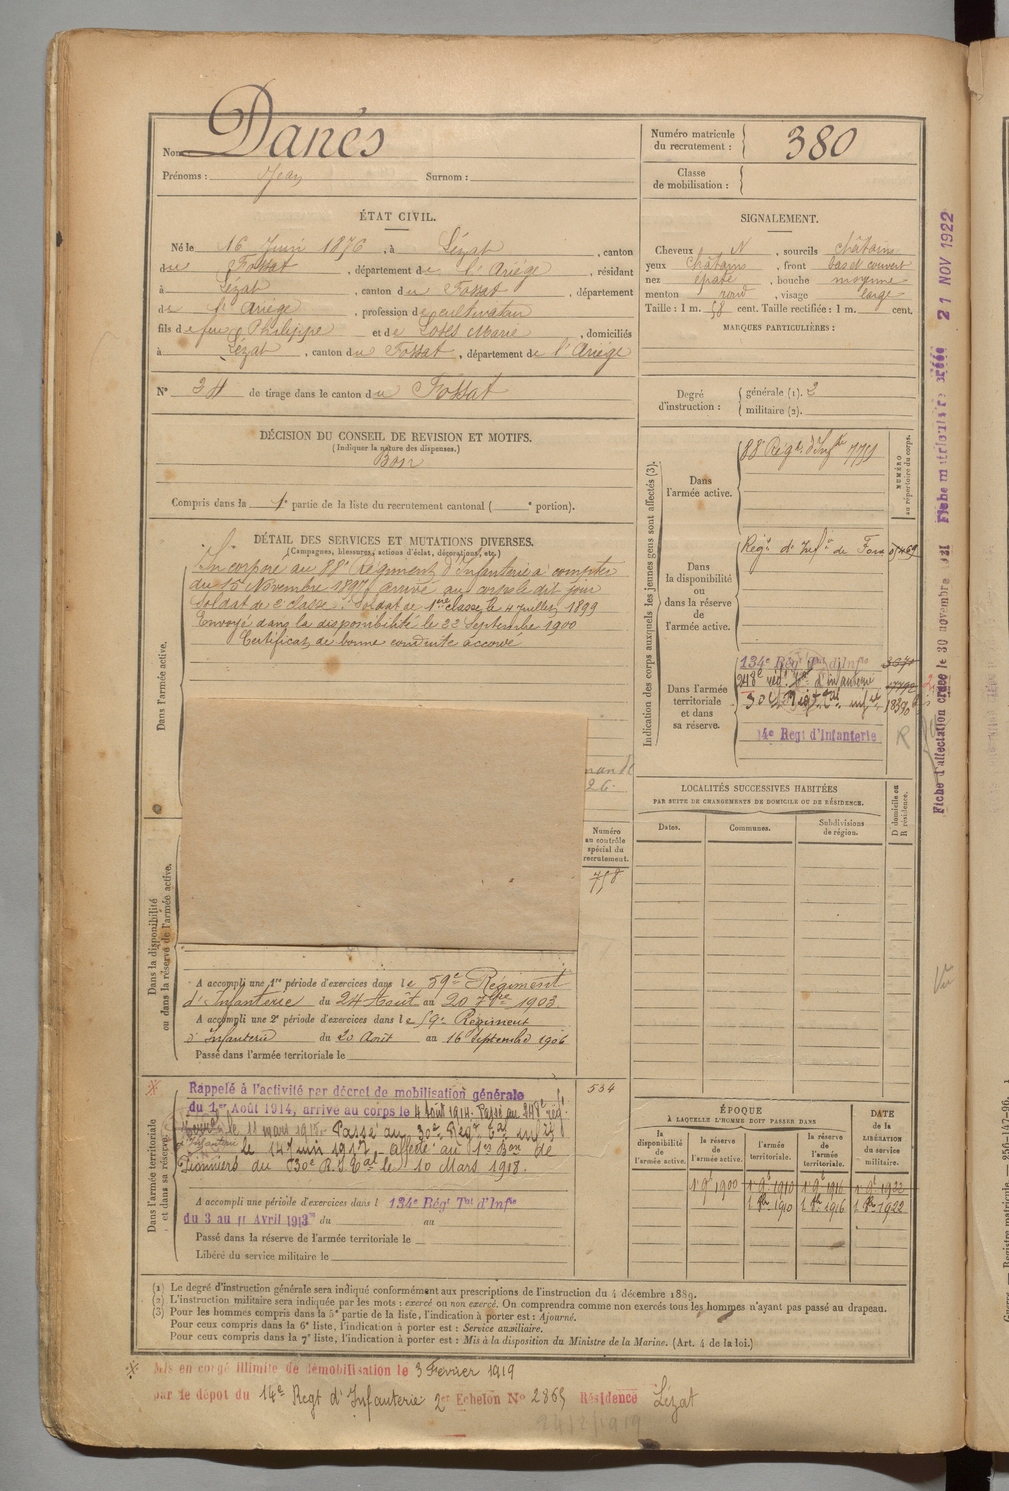 Nom Danés
Prénoms : Jean Surnom :
Numéro matricule du recrutement : 380
Classe de mobilisation :
ÉTAT CIVIL.
Né le 16 Juin 1876, à Lézat, canton
du Fossat, département de l'Ariége, résidant
à Lézat, canton du Fossat, département
de l'Ariége, profession de cultivateur
fils de feu Philippe et de Marie, domiciliés
à Lézat, canton du Fossat, département de l'Ariége
N° 34 de tirage dans le canton du Fossat
SIGNALEMENT.
Cheveux N, sourcils châtains
yeux châtains, front bas et couvert
nez épaté, bouche moyenne
menton rond, visage large
Taille : 1 m. 58 cent. Taille rectifiée : 1 m. cent.
MARQUES PARTICULIÈRES :
Degré d'instruction : générale (1). 2
militaire (2).
DÉCISION DU CONSEIL DE REVISION ET MOTIFS.
(Indiquer la nature des dispenses.)
Bon
Compris dans la 1e partie de la liste du recrutement cantonal ( e portion).
DÉTAIL DES SERVICES ET MUTATIONS DIVERSES.
(Campagnes, blessures, actions d'éclat, décorations, etc.)
Dans l'armée active.
Incorporé au 88e Régiment d'Infanterie à compter
du 15 Novembre 1897, arrivé au corps le dit jour
Soldat de 2e classe. Soldat de 1ère classe, le 4 Juillet 1899
Envoyé dans la disponibilité le 22 Septembre 1900
Certificat de bonne conduite accordé
Numéro au contrôle spécial du recrutement.
758
Dans la disponibilité ou dans la réserve de l'armée active.
A accompli une 1re période d'exercices dans le 59e Régiment
d'Infanterie du 24 Août au 20 7bre 1903.
A accompli une 2e période d'exercices dans le 59e Régiment
d'Infanterie du 20 Août au 16 Septembre 1906
Passé dans l'armée territoriale le
Dans l'armée territoriale et dans sa réserve.
534
Rappelé à l'activité par décret de mobilisation générale
du 1er Août 1914, arrivé au corps le 4 Août 1914. Passé au 248e rég.t
le 11 mars 191 Passé au 30e Régt Tal
d'Infanterie le 14 juin 1917 - affecté au 1er Bon de
Pionniers du R.I. Tal le 10 Mars 1918.
A accompli une période d'exercices dans l 134e Régt Tal d'Infie
du 3 au 11 Avril 1913 du au
Passé dans la réserve de l'armée territoriale le
Libéré du service militaire le
Indication des corps auxquels les jeunes gens sont affectés (3).
NUMÉRO au répertoire du corps.
Dans l'armée active.
88e Régt d'Infrie
Dans la disponibilité ou dans la réserve de l'armée active.
Régt d'Infie de Foix
Dans l'armée territoriale et dans sa réserve.
134e Régt Tal d'Infie
248e régt Tal d'infanterie
30e Régt Tal
14e Regt d'Infanterie
R
LOCALITÉS SUCCESSIVES HABITÉES
PAR SUITE DE CHANGEMENTS DE DOMICILE OU DE RÉSIDENCE.
Dates. Communes. Subdivisions de région. D domicile ou R résidence.
ÉPOQUE
À LAQUELLE L'HOMME DOIT PASSER DANS
DATE DE LA LIBÉRATION du service militaire.
la disponibilité de l'armée active. la réserve de l'armée active. l'armée territoriale. la réserve de l'armée territoriale.
1 9 1900 1 9 1910 1 9 1916 1 9 1922
1 8bre 1910 1 8bre 1916 1 8bre 1922
(1) Le degré d'instruction générale sera indiqué conformément aux prescriptions de l'instruction du 4 décembre 1889.
(2) L'instruction militaire sera indiquée par les mots : exercé ou non exercé. On comprendra comme non exercés tous les hommes n'ayant pas passé au drapeau.
(3) Pour les hommes compris dans la 5e partie de la liste, l'indication à porter est : Ajourné.
Pour ceux compris dans la 6e liste, l'indication à porter est : Service auxiliaire.
Pour ceux compris dans la 7e liste, l'indication à porter est : Mis à la disposition du Ministre de la Marine. (Art. 4 de la loi.)
Mis en congé illimité de démobilisation le 3 Février 1919
par le dépot du 14e Regt d'Infanterie 2e Echelon N° 2865 Résidence Lézat
24/2/1919
Fiche d'affectation créée le 30 novembre Fiche matriculaire créée 21 NOV 1922
Vu